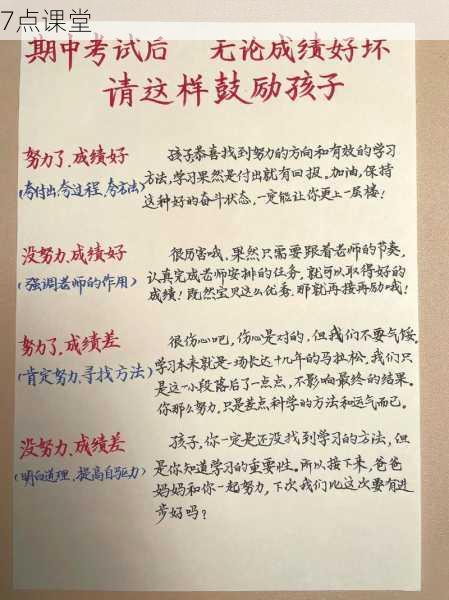 7点课堂
期中考试后 无论成绩好坏
请这样鼓励孩子
努力了、成绩好
(夸付出、夸过程、夸方法)
孩子、恭喜找到努力的方向和有效的学习
方法,学习果然是付出就有回报。加油,保持
这种好的奋斗状态,一定能让你更上一层楼!
没努力、成绩好
(强调老师的作用)
很厉害哦,果然只需要跟着老师的节奏,
认真完成老师安排的任务,就可以取得好的
成绩!既然宝贝这么优秀,那就再接再励哦!
努力了、成绩差
(肯定努力、寻找方法)
很伤心吧,伤心是对的,但我们不要气馁。
学习本来就是一场长达十几年的马拉松,我们只
是这一小段落后了一点点,不影响最终的结果。
你那么努力,只是差点科学的方法和运气而已。
没努力、成绩差
(明白道理、提高自驱力)
孩子,你一定是还没找到学习的方法,但
是你知道学习的重要性。所以接下来,爸爸
妈妈和你一起努力,下次我们比这次要有进
步好吗?